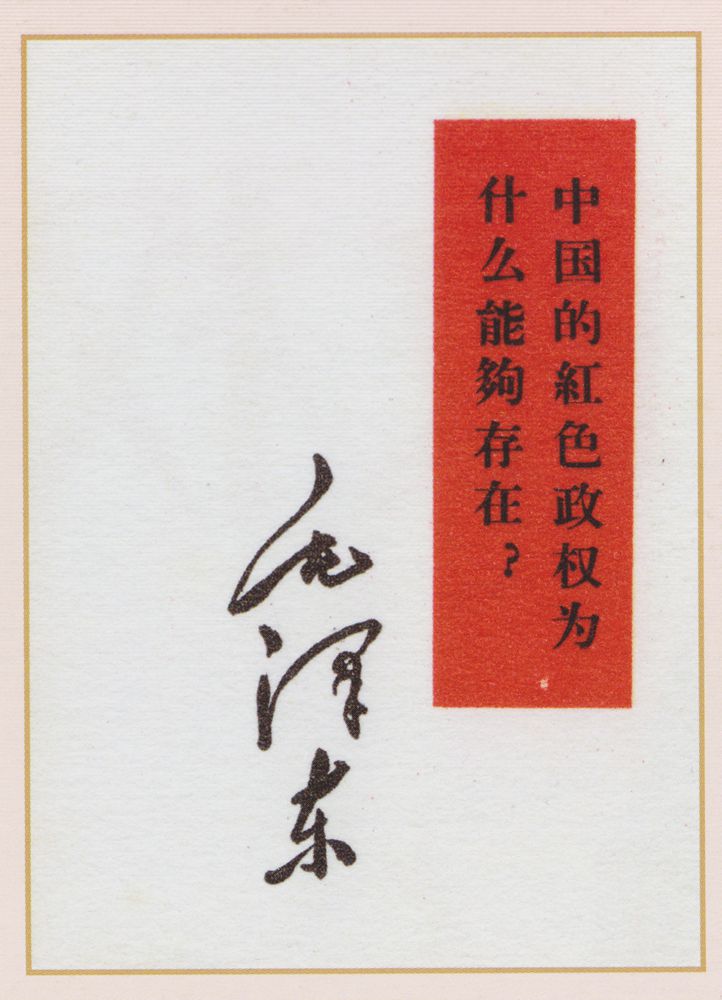 中国的紅色政权为
什么能夠存在？
毛泽东